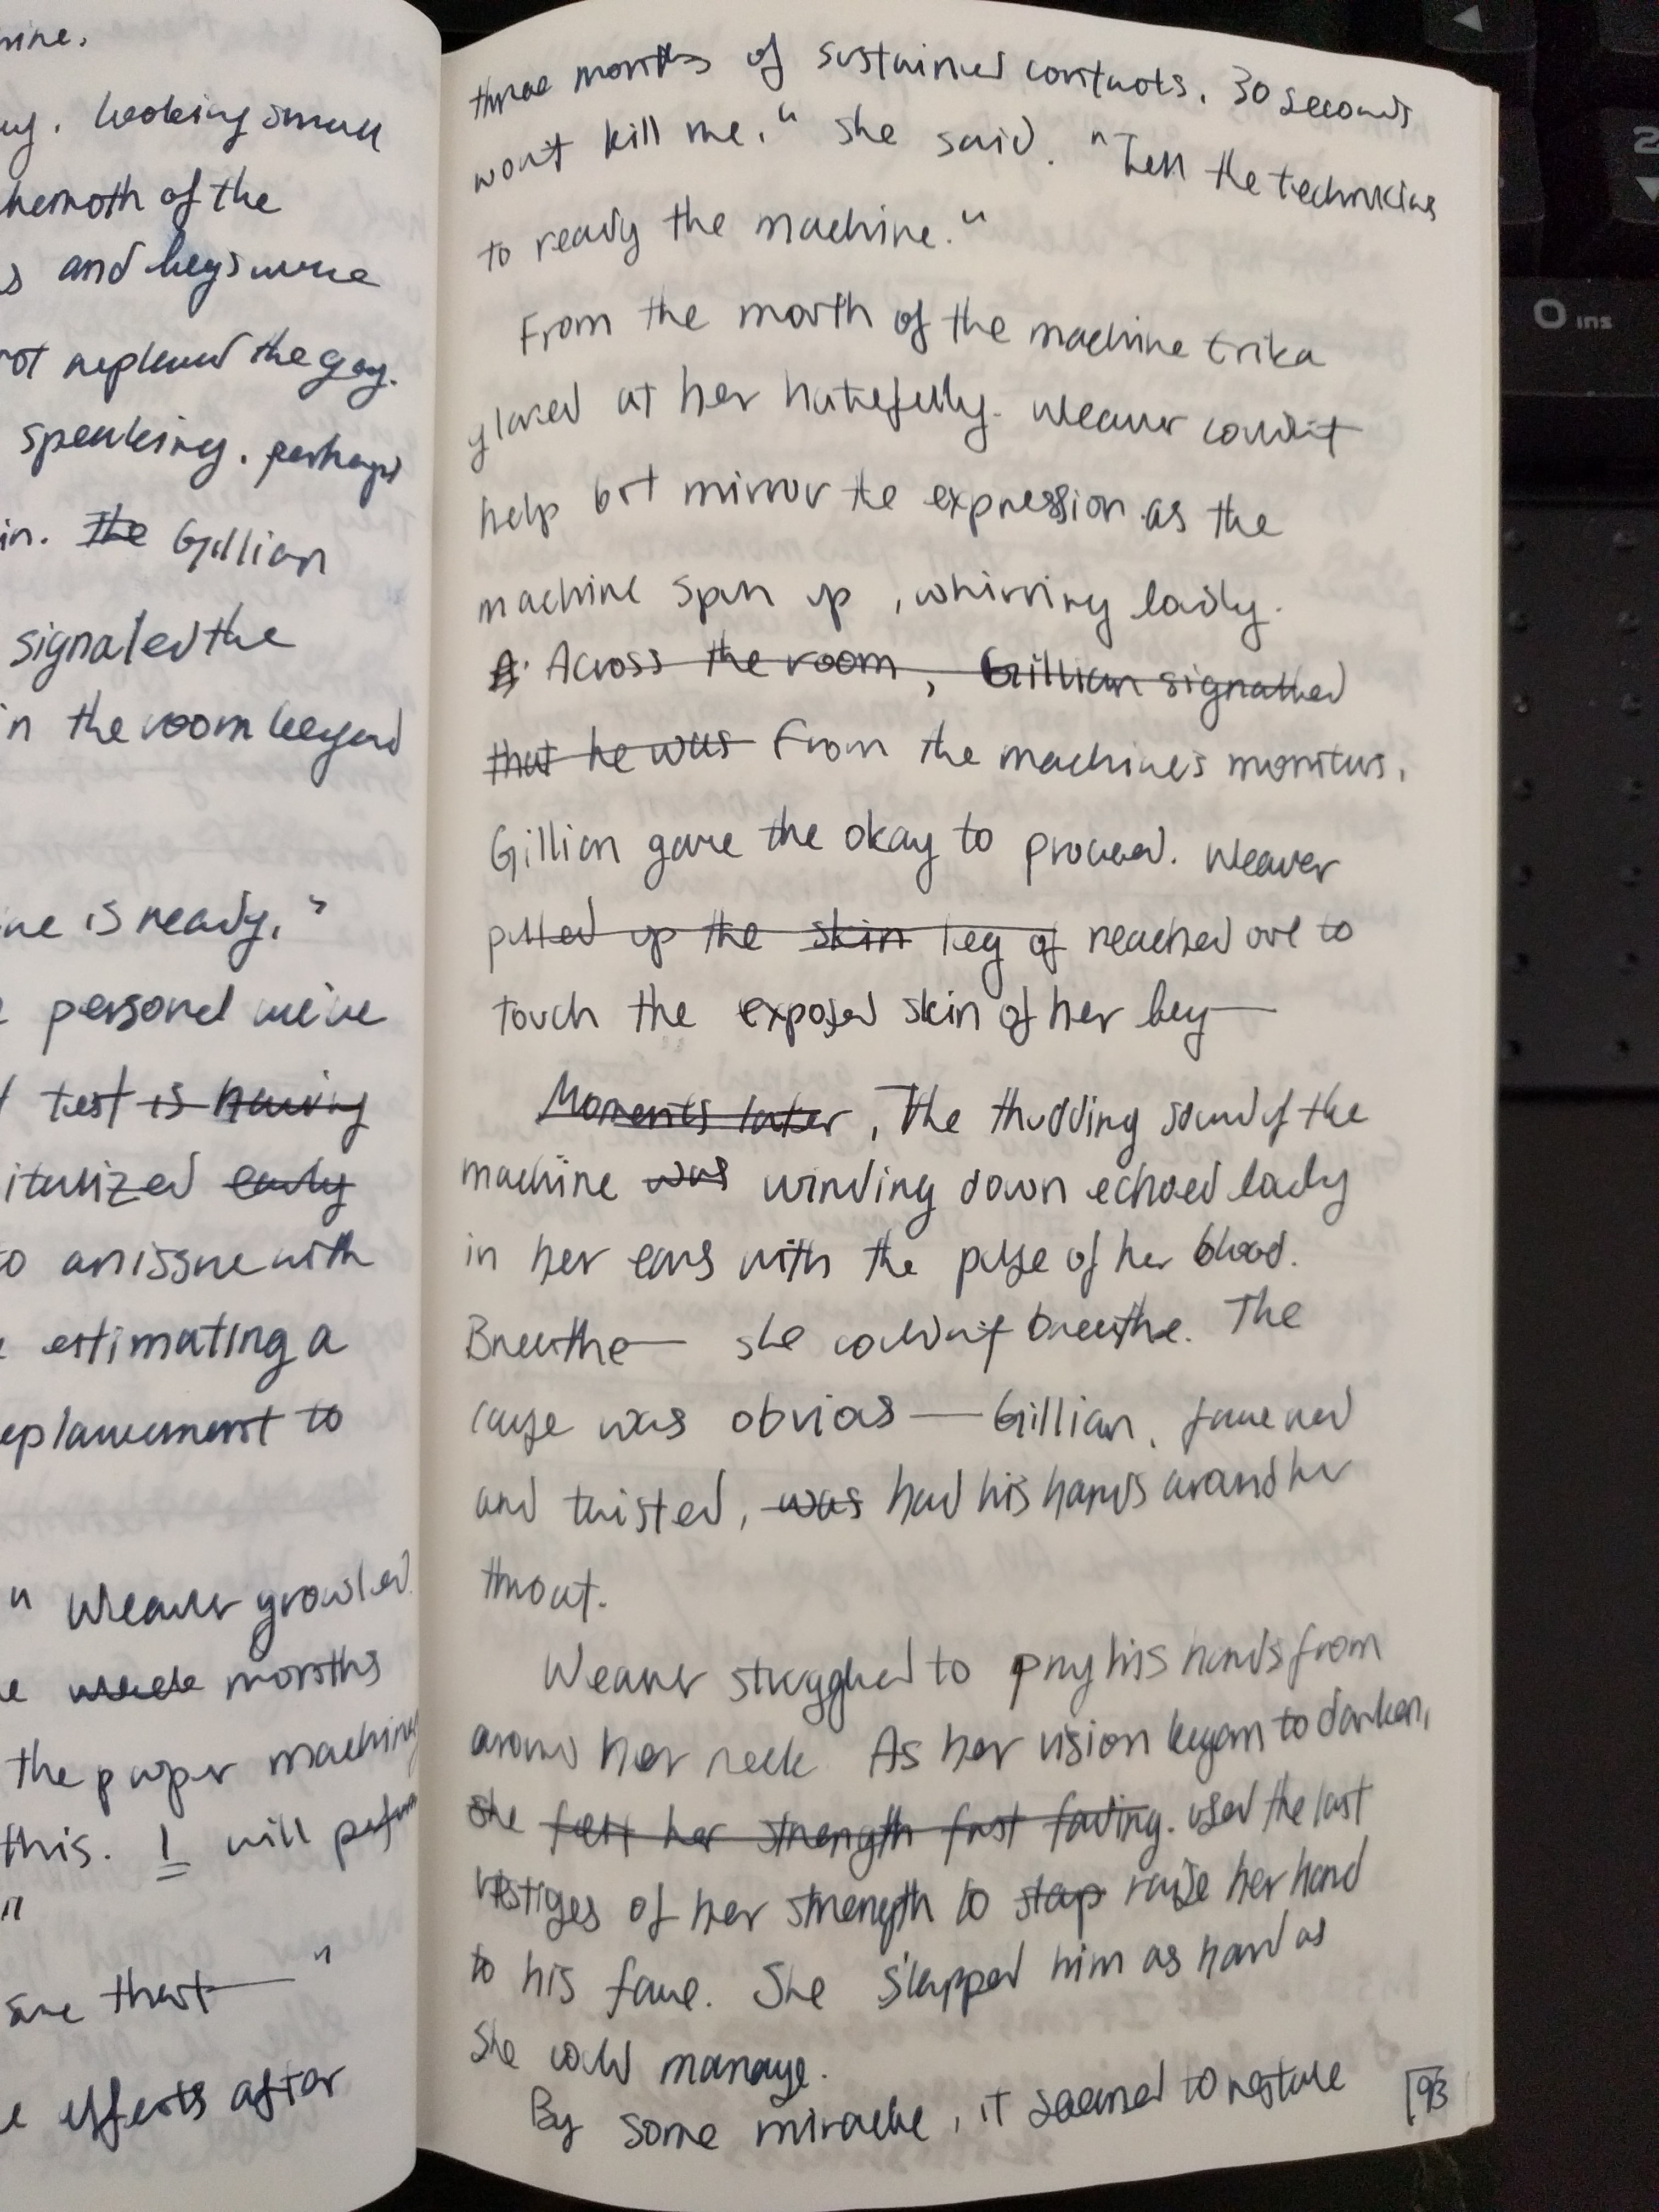 hine.
looking small
hemoth of the
s and legs were
not replaced the gag.
speaking. perhaps
in. the Gillian
signaled the
in the room beyond
ine is ready,"
personel we've
test is having
italized early
to an issue with
e estimating a
eplacement to
" Weaver growled.
months
the proper machine
this. I will perform
"
sure that—"
e effects after
three months of sustained contacts. 30 seconds
won't kill me," she said. "Tell the technicians
to ready the machine."
From the mouth of the machine Erika
glared at her hatefully. Weaver couldn't
help but mirror the expression as the
machine spun up, whirring loudly.
A. Across the room, Gillian signalled
that he was From the machine's monitors,
Gillian gave the okay to proceed. Weaver
pulled up the skin leg of reached out to
touch the exposed skin of her leg—
Moments later, The thudding sound of the
machine was winding down echoed loudly
in her ears with the pulse of her blood.
Breathe— she couldn't breathe. The
cause was obvious — Gillian,
and twisted, was had his hands around her
throat.
Weaver struggled to pry his hands from
around her neck. As her vision began to darken,
she felt her strength fast fading. used the last
vestiges of her strength to slap raise her hand
to his face. She slapped him as hard as
she could manage.
By some miracle, it seemed to restore
193
0 ins
2